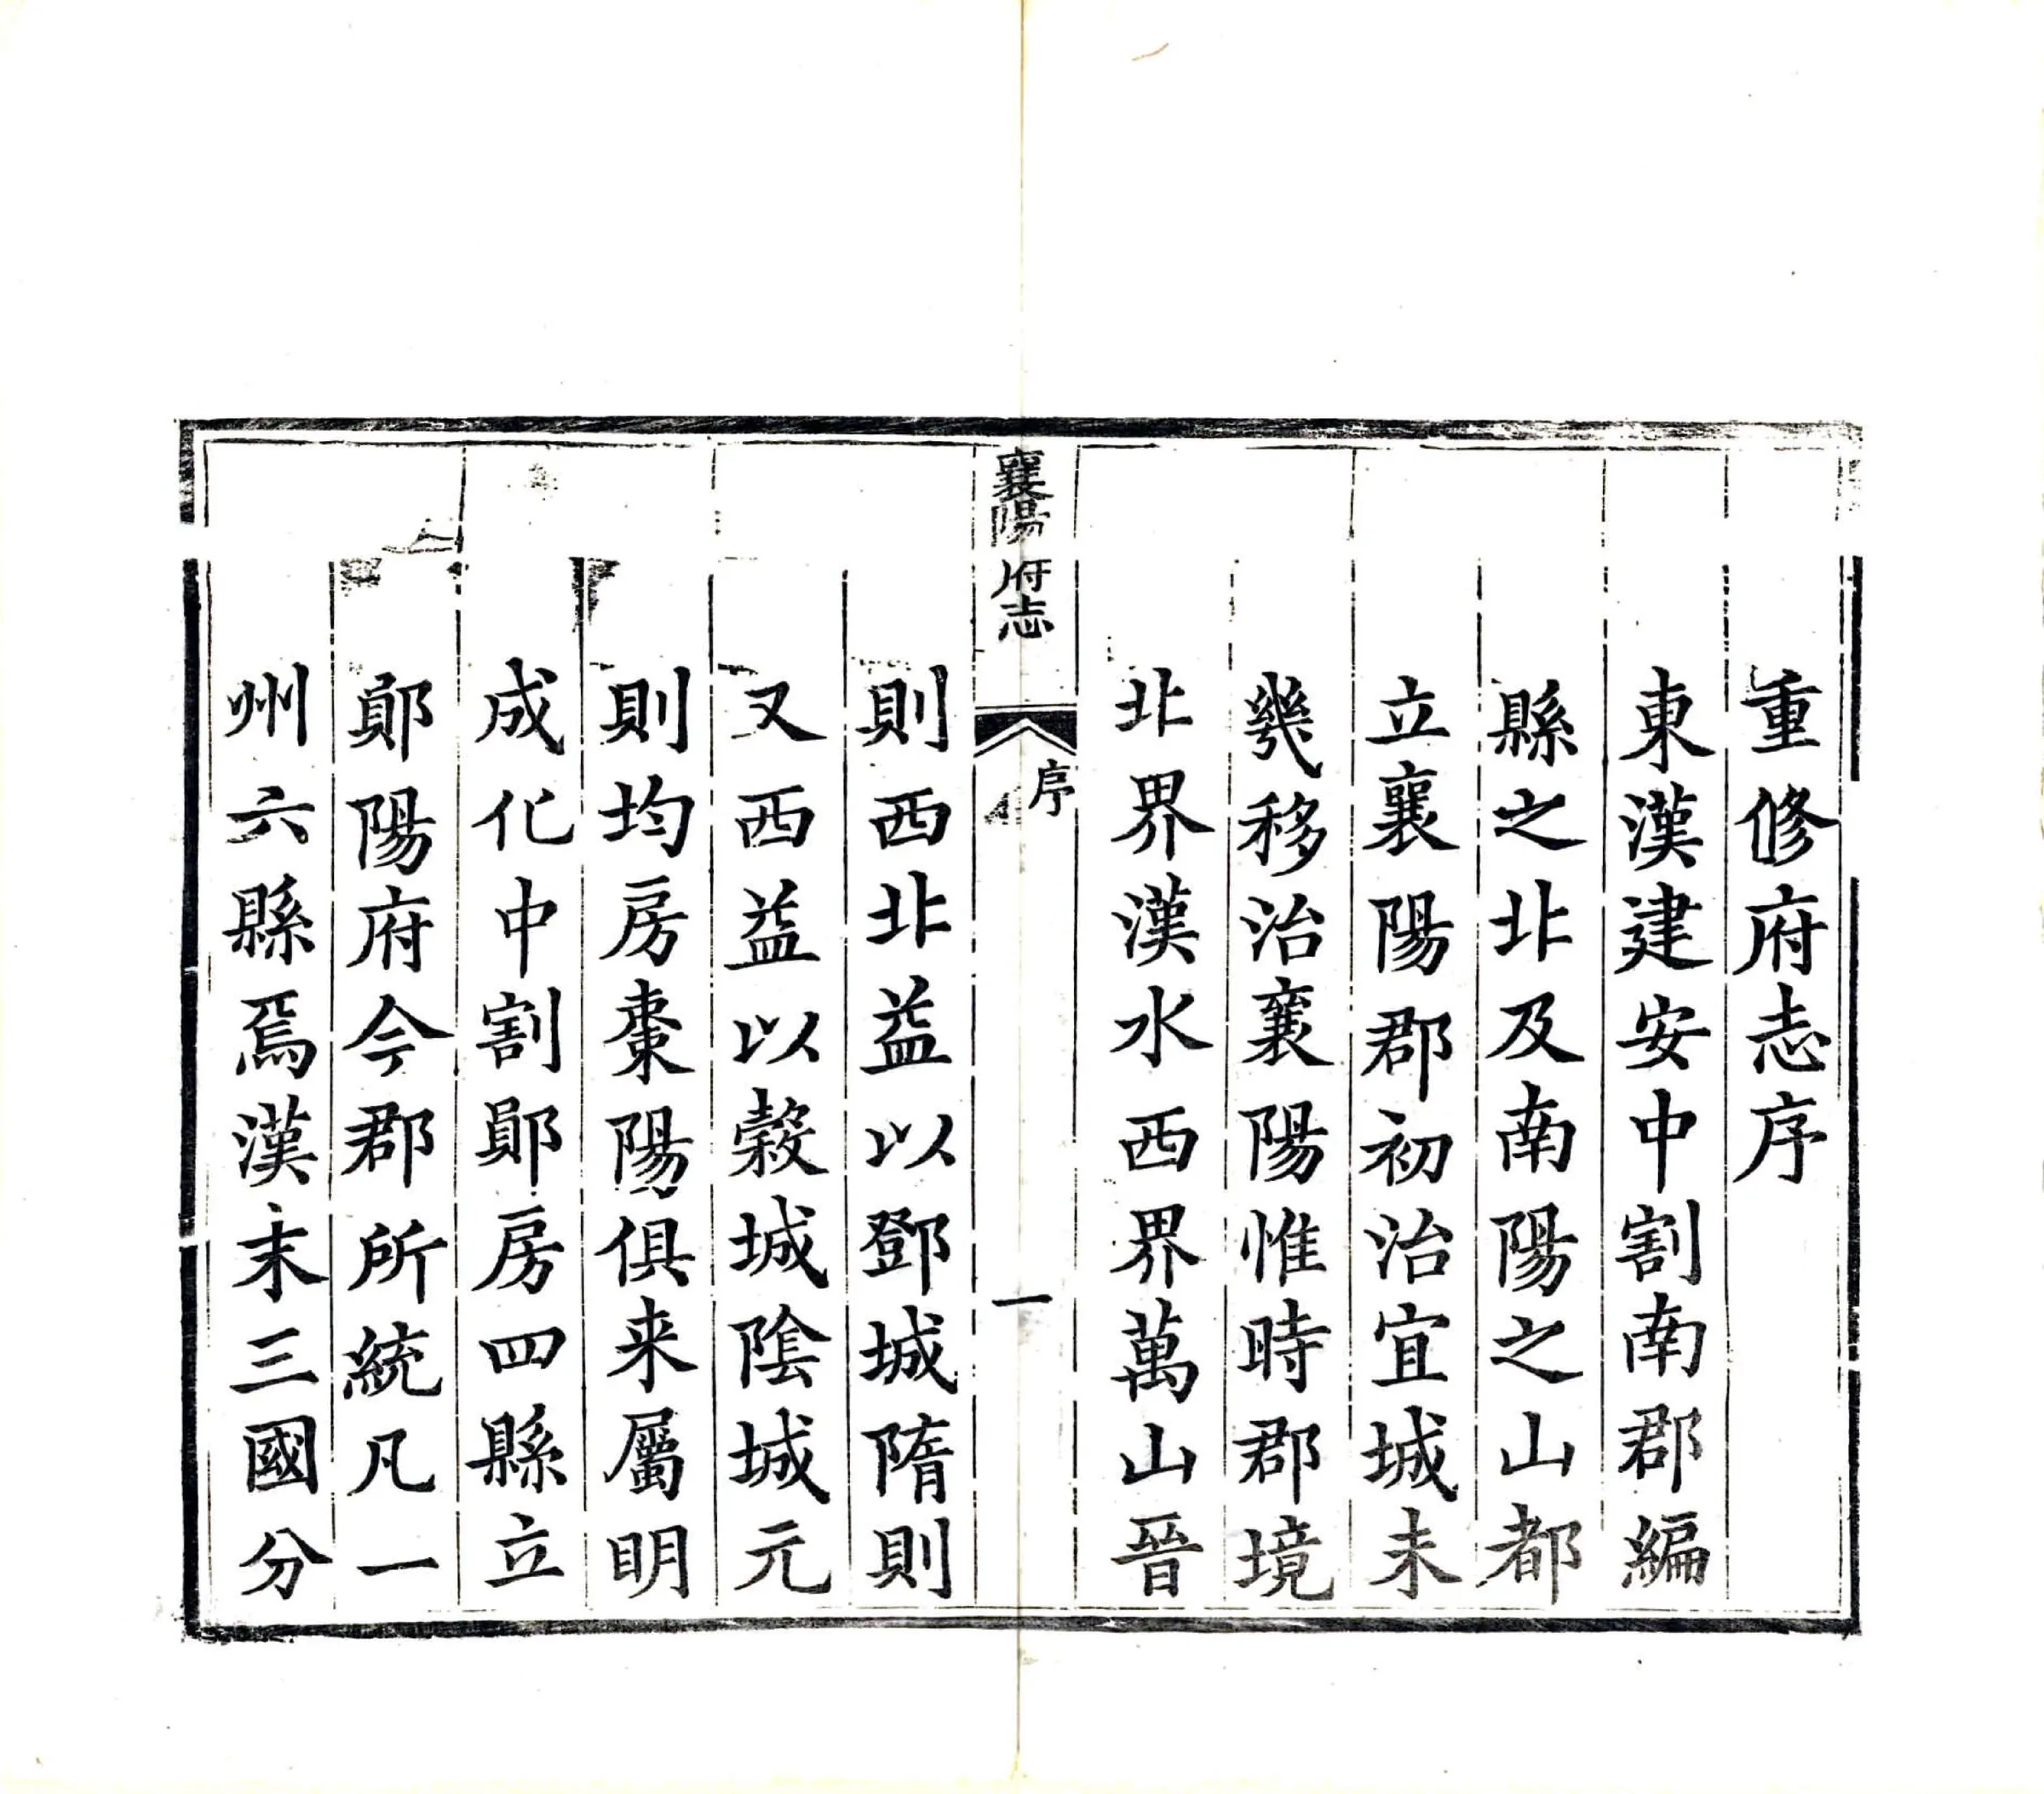 重修府志序
東漢建安中割南郡編
縣之北及南陽之山都
立襄陽郡初治宜城未
幾移治襄陽惟時郡境
北界漢水西界萬山晉
襄陽府志
序
一
則西北益以鄧城隋則
又西益以穀城陰城元
則均房棗陽俱来屬明
成化中割鄖房四縣立
鄖陽府今郡所統凡一
州六縣焉漢末三國分